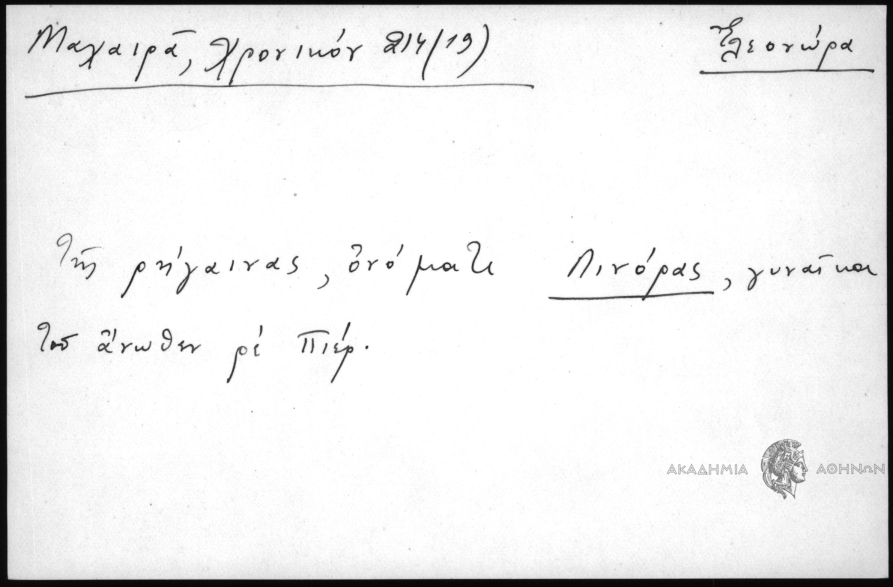 Μαχαιρᾶ, Χρονικόν 214(19)
Ἐλεονώρα
τῆς ρήγαινας, ὀνόματι Λινόρας, γυναῖκα
τοῦ ἄνωθεν ρὲ Πιέρ.
ΑΚΑΔΗΜΙΑ ΑΘΗΝΩΝ